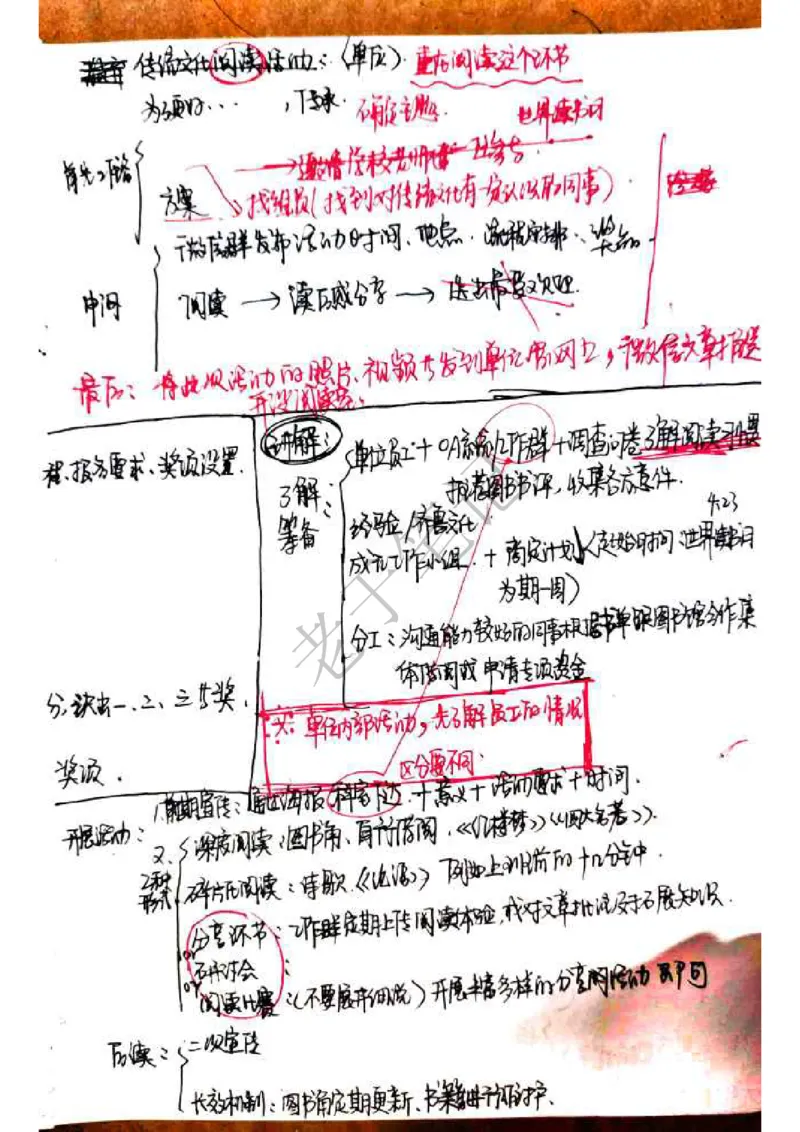 传统文化阅读活动：（单位）. 重在阅读这个环节
为了更好... ，传承. 确定主题. 世界读书日
首先
方案 找组员（找到对传统文化有一定认识的同事）
微信群发布活动时间、地点、流程安排、奖品
中间 阅读 → 读后感分享 →
最后：将此次活动的照片、视频发到单位官网上，微信文章推送
开设阅读
报名要求、奖项设置.
讲解：
单位员工 + OA系统工作群 + 调查问卷了解阅读习惯
了解： 推荐图书书评，收集各方意件.
筹备 经验/齐鲁文化 4.23
成立工作小组. + 商定计划（起始时间：世界读书日
为期一周）
分工：沟通能力较好的同事根据书单跟图书馆合作集
体借阅或申请专项资金
分，决出一、二、三等奖.
奖项.
※：单位内部活动，先了解员工的情况
区分要不同.
开展活动：
1.前期宣传：海报 + 意义 + 活动要求 + 时间.
2. 深度阅读：图书角、自行借阅，《红楼梦》《四大名著》.
2种形式 碎片化阅读：诗歌、《论语》 例如上班前的十几分钟.
分享环节：工作群定期上传阅读体验，或对文章批说及拓展知识.
or 研讨会：
or 阅读比赛：（不要展开细说）开展丰富多样的分享活动即可
后续：
二次宣传
长效机制：图书角定期更新、书籍进行维护.
老于笔记